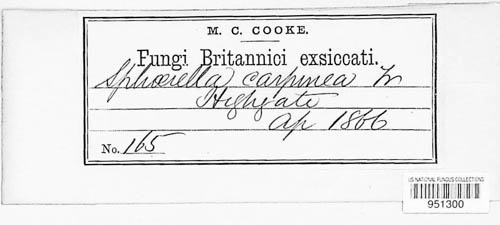 M. C. COOKE.
Fungi Britannici exsiccati.
Sphærella carpinea Fr
Highgate
Ap 1866
No. 165
US NATIONAL FUNGUS COLLECTIONS
951300